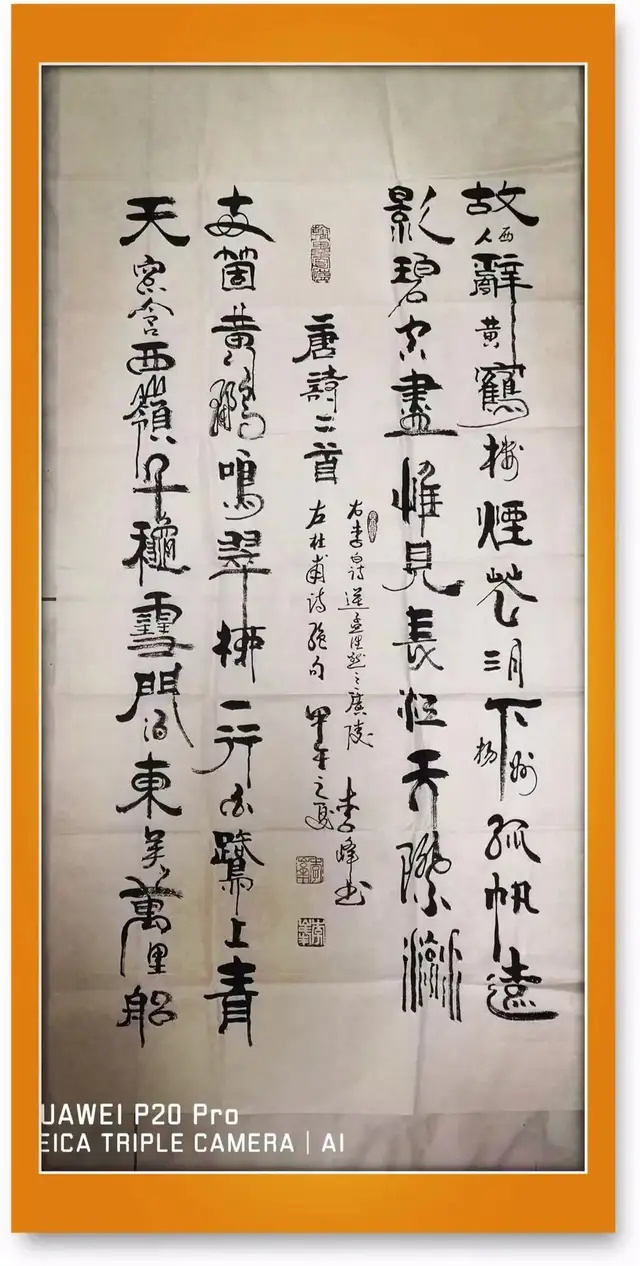 故人西辭黃鶴楼煙花三月下揚州孤帆遠
影碧空盡惟見長江天際流
唐詩二首
右李白詩送孟浩然之廣陵
左杜甫詩絕句
甲午之夏
李峰书
两箇黄鸝鳴翠柳一行白鷺上青
天窗含西嶺千穐雪門泊東吴萬里船
UAWEI P20 Pro
EICA TRIPLE CAMERA | AI